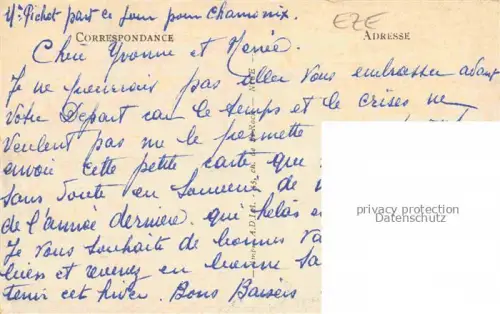 Mr Pichot part ce jour pour Chamonix.
EZE
CORRESPONDANCE
ADRESSE
Chère Yvonne et Renée.
Je ne pourrais pas aller vous embrasser avant
votre Départ car le temps et le crises ne
veulent pas me le permette
envoi cette petite carte que
sans doute en souvenir de
de l'année dernière. qui hélas
Je vous souhaite de bonnes
bien et revenez en bonne
tenir cet hiver. Bons Baisers
privacy protection
Datenschutz